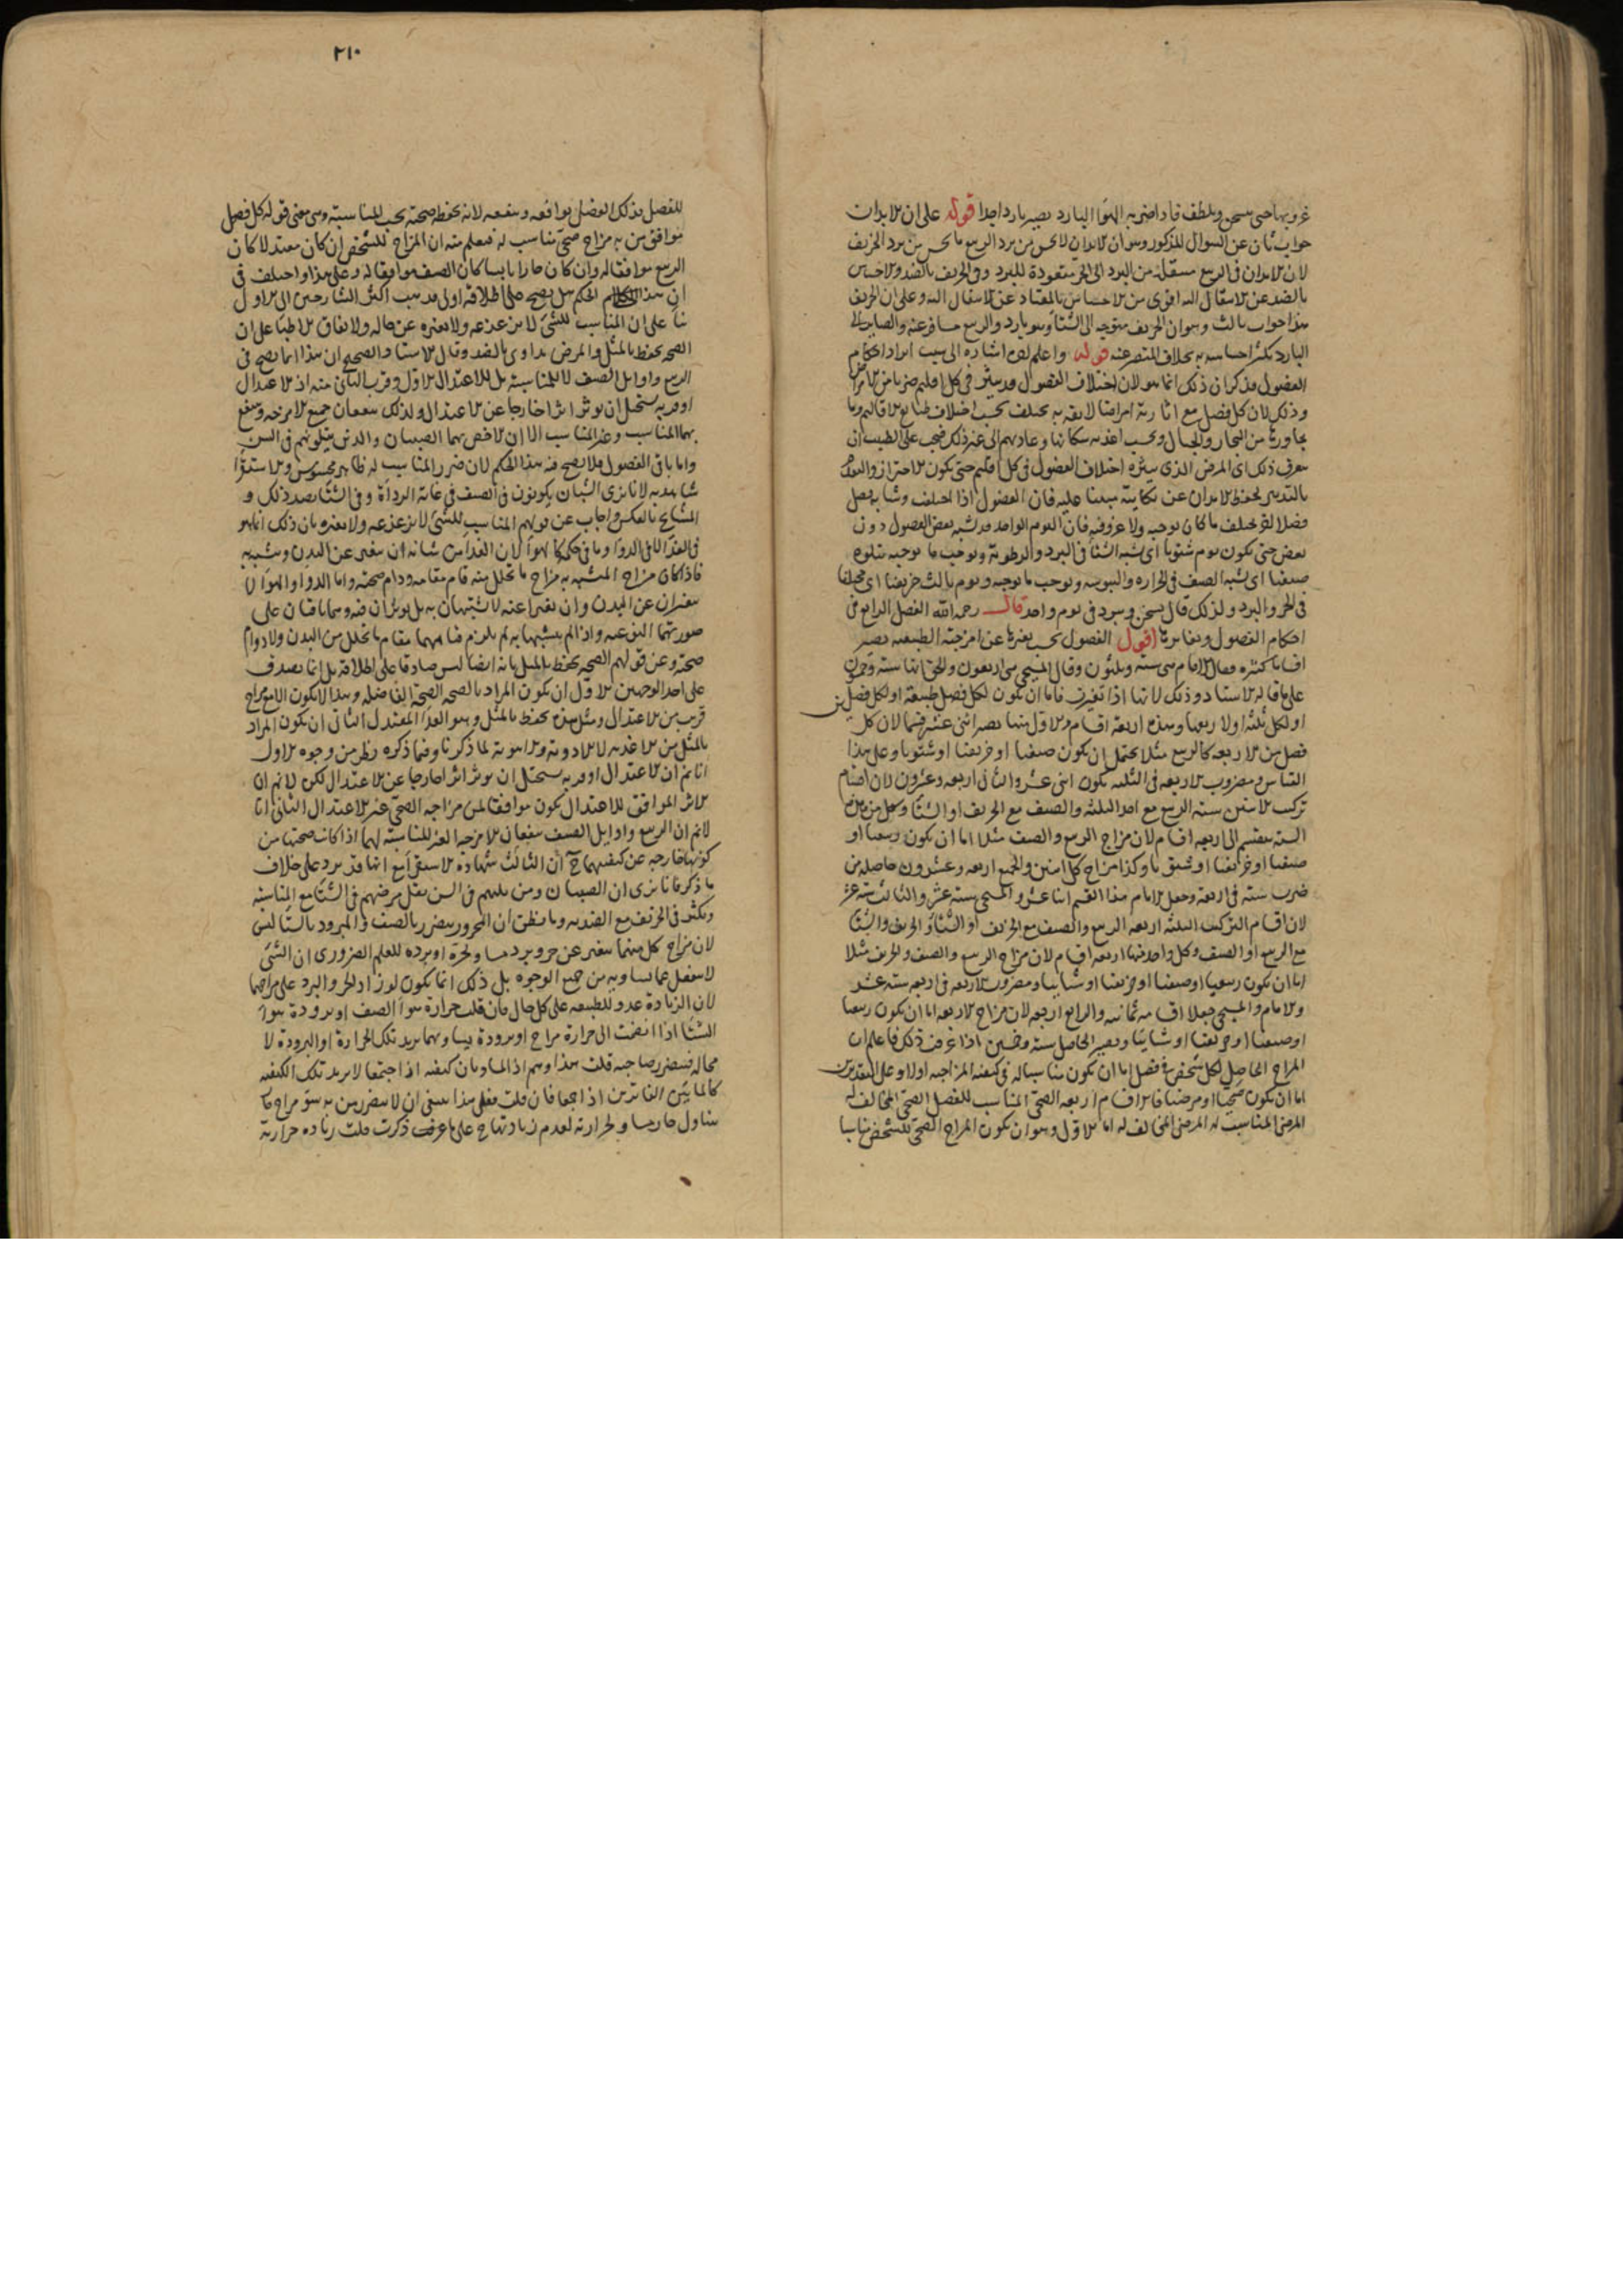 غروبها حتى سخن ويلطف فاذا ضربه الهوا البارد يصير باردا جدا قوله على ان الابدان
جواب ثان عن السوال المذكور وهو ان الابدان لا تحس من برد الربيع ما تحس من برد الخريف
لان الابدان فى الربيع منتقلة من البرد الى الحر متعودة للبرد وفى الخريف بالضد والاحساس
بالضد عن الانتقال اليه اقوى من الاحساس بالمعتاد عن الانتقال اليه وعلى ان الخريف
هذا جواب ثالث وهو ان الخريف متوجه الى الشتا وهو بارد والربيع مسافر عنه والصاير الى
البارد يكثر احساسه به بخلاف المنصرف عنه قوله واعلم اشاره الى سبب ايراد احكام
الفصول وذكر ان ذلك انما هو لان اختلاف الفصول قد يثير فى كل اقليم ضربا من الامراض
وذلك لان كل فصل مع اثارته امراضا لايقة به يختلف بحسب اختلاف طبايع الاقاليم وما
يجاورها من البحار والجبال وبحسب اغذيه سكانها وعاداتهم الى غير ذلك فيجب على الطبيب ان
يعرف ذلك اى المرض الذى يثيره اختلاف الفصول فى كل اقليم حتى يكون الاحتراز والتقدم
بالتدبير لحفظ الابدان عن نكايته مبنيا عليه فان الفصول اذا اختلف وشابه فصل
فصلا اخر يختلف ما كان يوجبه ولا عروفيه فان اليوم الواحد قد يشبه بعض الفصول دون
بعض حتى يكون يوم شتويا اى يشبه الشتا فى البرد والرطوبة ويوجب ما يوجبه يتلوه
صيفيا اى يشبه الصيف فى الحراره واليبوسه ويوجب ما يوجبه ويوم ثالث خريفيا اى مختلفا
فى الحر والبرد ولذلك قال يسخن ويبرد فى يوم واحد قال رحمه الله الفصل الرابع فى
احكام الفصول وتغايرها اقول الفصول بحسب تغيرها عن امزجتها الطبيعيه تصير
اقساما كثيره فقال الامام هى سته وثلثون وقال المسيحى هى اربعون والحق انها سته وخمسون
على ما قاله الاستاد وذلك لانها اذا تغيرت فاما ان يكون لكل فصل طبيعة او لكل فصلين
او لكل ثلثه اولا ربعها وهذه اربعة اقسام والاول منها يصير اثنى عشر قسما لان كل
فصل من الاربعه كالربيع مثلا يحتمل ان يكون صيفيا او خريفيا او شتويا وعلى هذا
القياس ومضروب الاربعه فى الثلثه يكون اثنى عشر والثانى اربعه وعشرون لان اقسام
تركيب الاثنين سته الربيع مع احد الثلثه والصيف مع الخريف او الشتا وكل من هذه
السته ينقسم الى اربعه اقسام لان مزاج الربيع والصيف مثلا اما ان يكون ربيعيا او
صيفيا او خريفيا او شتويا وكذا مزاج كل اثنين والجميع اربعه وعشرون حاصله من
ضرب سته فى اربعه وجعل الامام هذا القسم اثنا عشر والمسيحى سته عشر والثالث سته عشر
لان اقسام التركيب الثلثه اربعه الربيع والصيف مع الخريف او الشتا والخريف والشتا
مع الربيع او الصيف وكل واحد منها اربعه اقسام لان مزاج الربيع والصيف والخريف مثلا
اما ان يكون ربيعيا او صيفيا او خريفيا او شتاييا ومضروب الاربعه فى اربعه سته عشر
والامام والمسيحى جعلا اقسامه ثمانيه والرابع اربعه لان مزاج الاربعه اما ان يكون ربيعيا
او صيفيا او خريفيا او شتاييا ويصير الحاصل سته وخمسين اذا عرفت ذلك فاعلم ان
المزاج الحاصل لكل شخص فى فصل اما ان يكون مناسبا له فى كيفيه المزاجيه اولا وعلى التقديرين
اما ان يكون صحيا او مرضيا فالاقسام اربعه الصحى المناسب للفصل الصحى المخالف له
المرضى المناسب له المرضى المخالف له اما الاول وهو ان يكون المزاج الصحى للشخص مناسبا
٢١٠
للفصل فذلك الفصل يوافقه وينفعه لانه يحفظ صحته بحسب المناسبة وهى معنى قوله كل فصل
يوافق من به مزاج صحى مناسب له فيعلم منه ان المزاج للشخص ان كان معتدلا كان
الربيع موافقا له وان كان حارا يابسا كان الصيف موافقا له وعلى هذا واختلف فى
ان هذا الحكم هل يصح على اطلاقه اولى فذهب اكثر الشارحين الى الاول
بنا على ان المناسب للشى لا يزعزعه ولا يغيره عن حاله ولاتفاق الاطبا على ان
الصحه تحفظ بالمثل والمرض يداوى بالضد وقال الاستاد الصحيح ان هذا انما يصح فى
الربيع واوايل الصيف لا للمناسبة بل للاعتدال الاول وقرب الثانى منه اذ الاعتدال
او قربه يستحيل ان يوثر اثرا خارجا عن الاعتدال ولذلك ينفعان جميع الامزجه وينتفع
بهما المناسب وغير المناسب الا ان الاخص بهما الصبيان والذين يتلونهم فى السن
واما باقى الفصول فلا يصح فيه هذا الحكم لان ضرر المناسب له ظاهر محسوس والاستقرا
شاهد به لانا نرى الشبان يكونون فى الصيف فى غاية الرداة وفى الشتا بضد ذلك و
المشايخ بالعكس واجاب عن قولهم المناسب للشى لا يزعزعه ولا يغيره بان ذلك انما هو
فى الغذا لا فى الدوا وما فى حكمه كالهوا لان الغذا من شانه ان يتغير عن البدن ويتشبه به
فاذا كان مزاج المتشبه به مزاج ما تحلل منه قام مقامه ودام صحته واما الدوا والهوا لا
يتغيران عن البدن وان تغيرا عنه لا يتشبهان به بل يوثران فيه وهما باقيان على
صورتهما النوعيه واذا لم يتشبها به لم يلزم قيامهما مقام ما تحلل من البدن ولا دوام
صحته وعن قولهم الصحه تحفظ بالمثل بانه ايضا ليس صادقا على اطلاقه بل انما يصدق
على احد الوجهين الاول ان يكون المراد بالصحه الصحة الفاضله وهذا لا يكون الا مع مزاج
قريب من الاعتدال ومثل هذه يحفظ بالمثل وهو الغذا المعتدل الثانى ان يكون المراد
بالمثل من الاغذيه لا الادويه والاهويه لما ذكرنا وفيما ذكره نظر من وجوه الاول
انا نم ان الاعتدال او قربه يستحيل ان يوثر اثرا خارجا عن الاعتدال لكن لا نم ان
الاثر الموافق للاعتدال يكون موافقا لمن مزاجه الصحى غير الاعتدال الثانى انا
لا نم ان الربيع واوايل الصيف ينفعان الامزجه الغير المناسبه لهما اذا كانت صحتها من
كونها خارجه عن كيفيتهما ح ان الثالث شهادة الاستقرا مع انها قد يرد على خلاف
ما ذكر فانا نرى ان الصبيان ومن يليهم فى السن يقل مرضهم فى الشتا مع المناسبه
ويكثر فى الخريف مع الضديه وما يظن ان المحرور يتضرر بالصيف والمبرود بالشتا ليس
لان مزاج كل منهما يتغير عن حر وبرد مساو لحره او برده للعلم الضرورى ان الشى
لا ينفعل عما يساويه من جميع الوجوه بل ذلك انما يكون لو زاد الحر والبرد على مزاجهما
لان الزيادة عدو للطبيعه على كل حال فان قلت حرارة هوا الصيف او برودة هوا
الشتا اذا انضمت الى حرارة مزاج او برودة يساويهما يزيد تلك الحرارة او البرودة لا
محاله فيتضرر صاحبه قلت هذا وهم اذ المساويان كيفيه اذا اجتمعا لا يزيد تلك الكيفيه
كالمايين الفاترين اذا اجتمعا فان قلت فعلى هذا ينبغى ان لا يتضرر من به سو مزاج حار
بتناول حار مساو لحرارته لعدم زيادتها ح على ما عرفت ذكرت قلت زياده حرارته